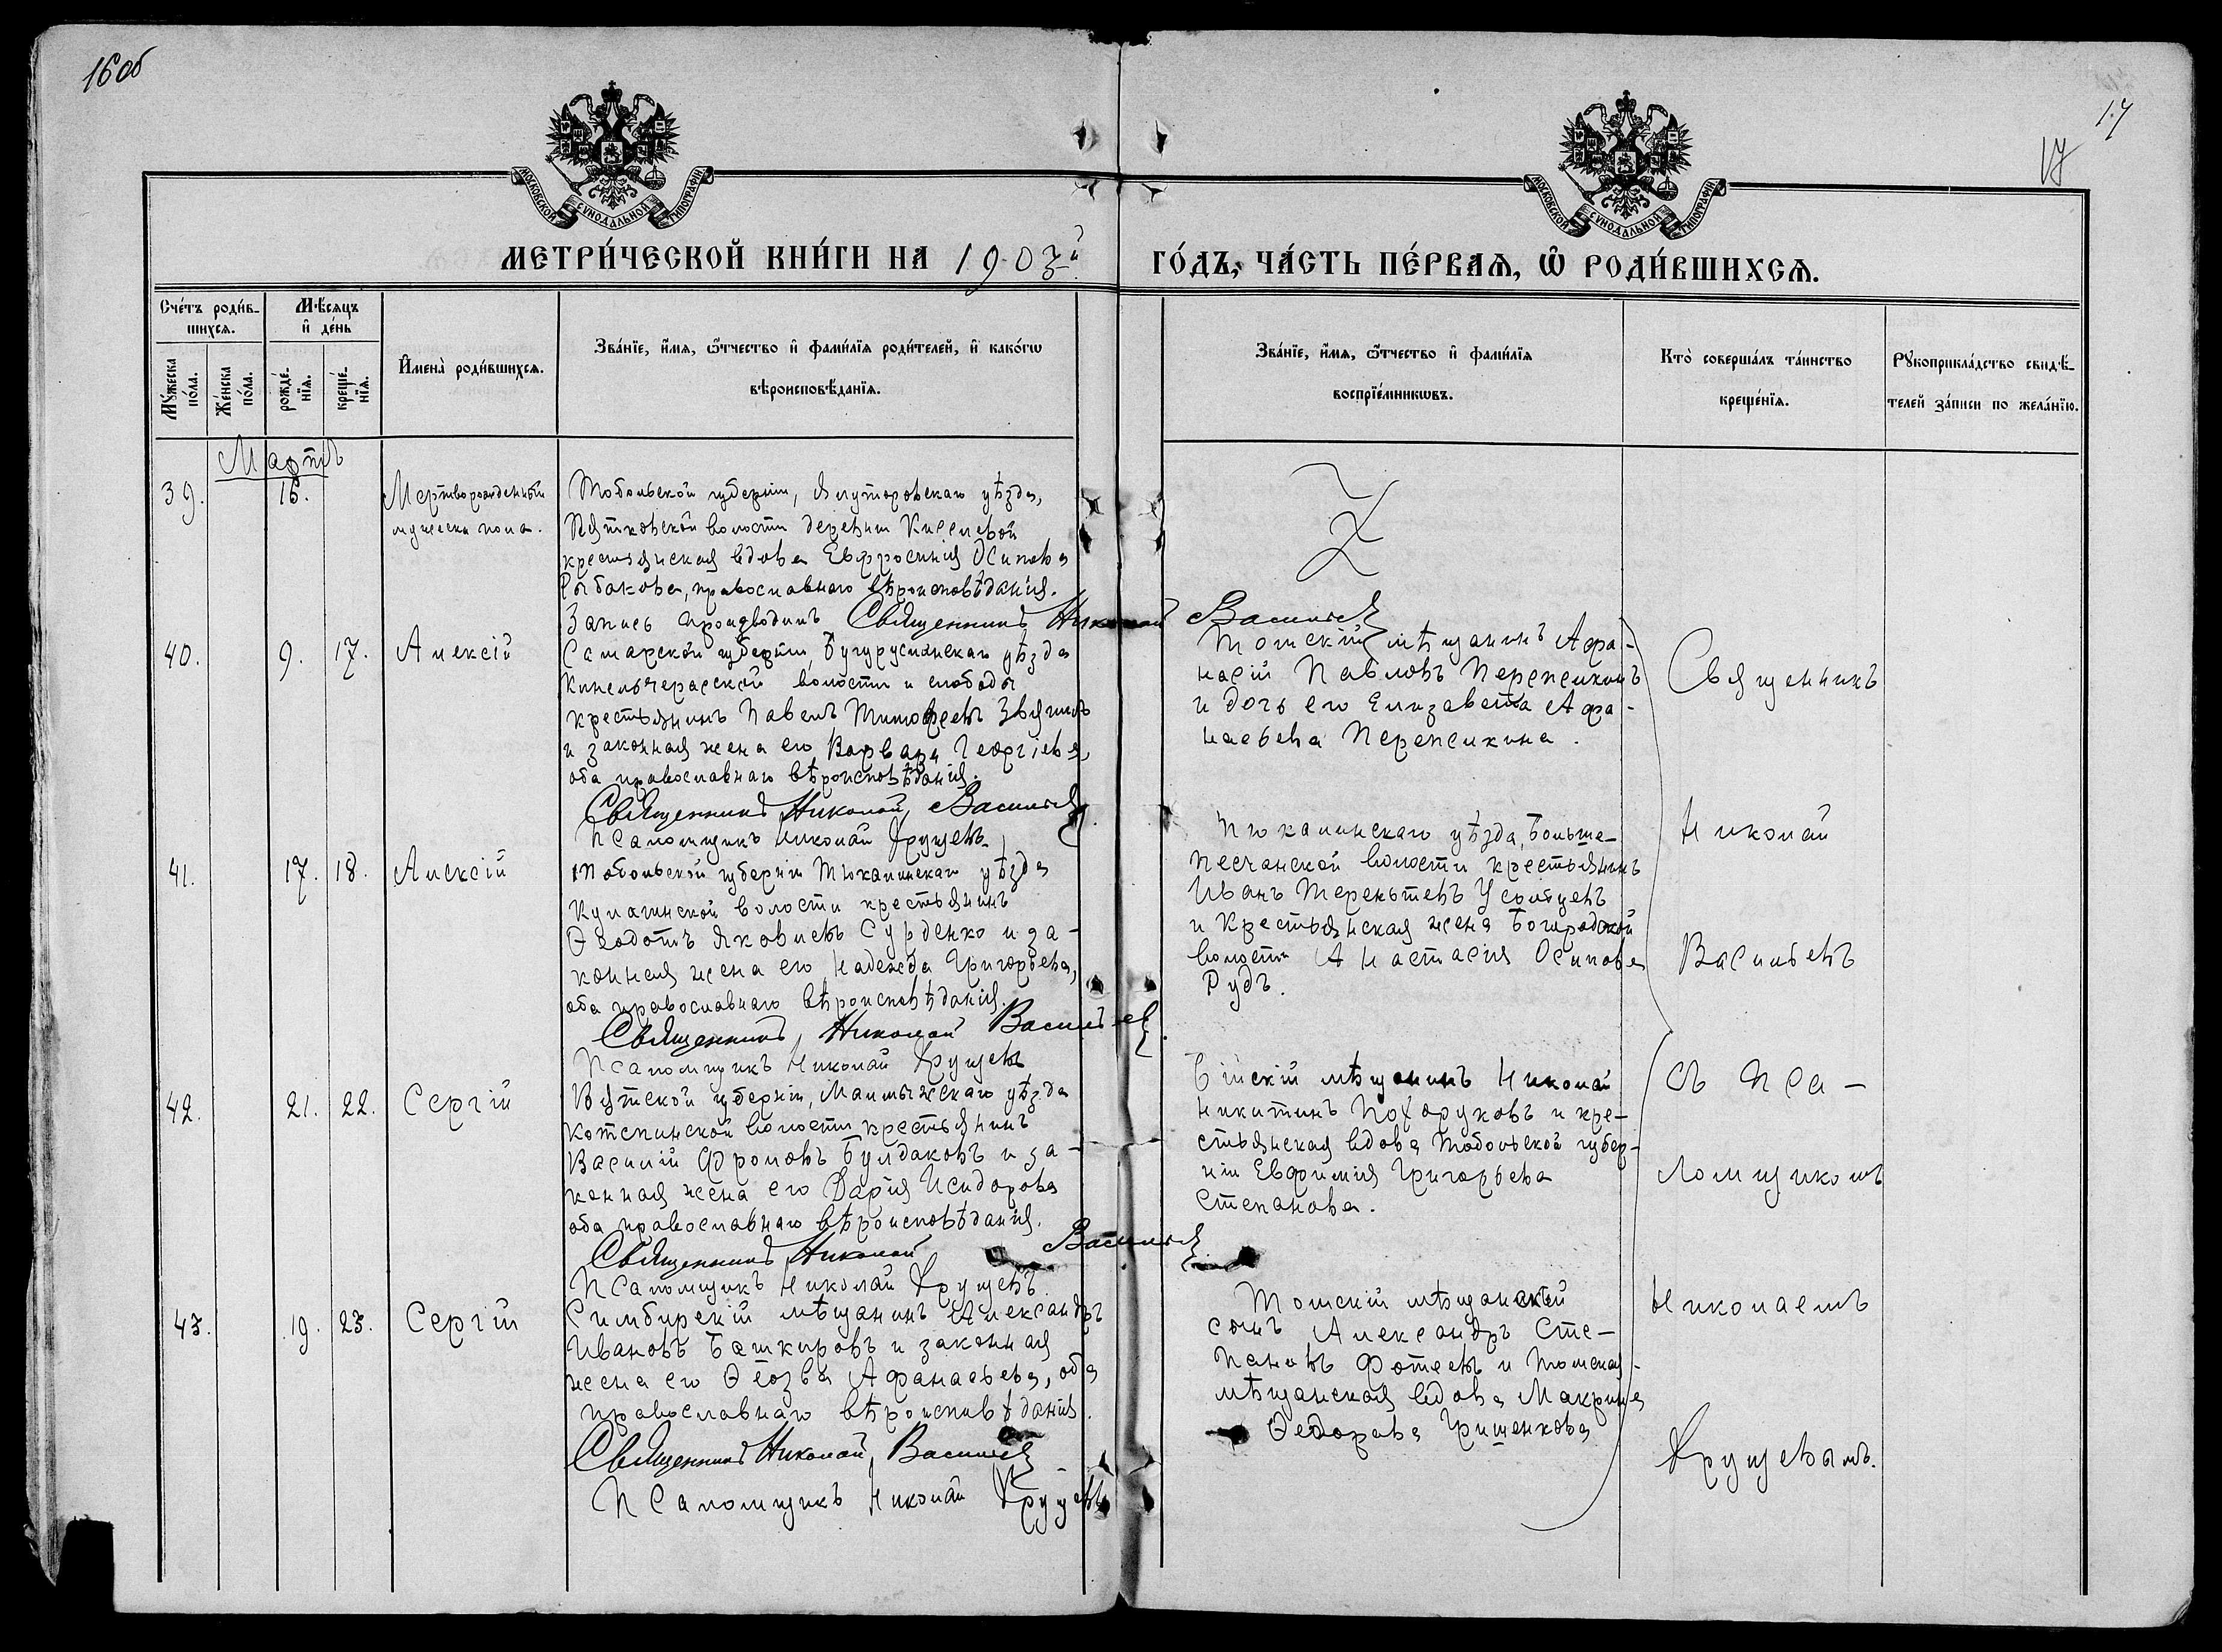 16об
17
17
МОСКОВСКОЙ СѴНОДАЛЬНОЙ ТИПОГРАФІИ
МОСКОВСКОЙ СѴНОДАЛЬНОЙ ТИПОГРАФІИ
МЕТРИ́ЧЕСКОЙ КНИ́ГИ НА 1903й ГО́ДЪ, ЧА́СТЬ ПЕ́РВАѦ, Ѡ҆ РОДИ́ВШИХСѦ.
Сче́тъ роди́в-
шихсѧ.
Мꙋ́жеска по́ла.
Же́нска по́ла.
Мѣ́сѧцъ
и҆ де́нь
рожде́-
нїѧ.
креще́-
нїѧ.
И҆мена̀ роди́вшихсѧ.
Зва́нїе, и҆́мѧ, ѻ҆́тчество и҆ фами́лїѧ роди́телей, и҆ како́гѡ
вѣроисповѣ́данїѧ.
Зва́нїе, и҆́мѧ, ѻ҆́тчество и҆ фами́лїѧ
воспрїе́мникѡвъ.
Кто̀ соверша́лъ та́инство
креще́нїѧ.
Рꙋкоприкла́дство свидѣ́-
телей за́писи по жела́нїю.
Мартъ
39. 16. Мертворожденный
мужеска пола.
Тобольской губерніи, Ялуторовскаго уѣзда,
Пятковской волости деревни Киселевой
крестьянская вдова Евфросинія Осипова
Рыбакова, православнаго вѣроисповѣданія.
Запись производилъ Священникъ Николай Васильев
40. 9. 17. Алексій
Самарской губерніи, Бугурусланскаго уѣзда
Кинельчерасской волости и слободы
крестьянинъ Павелъ Тимофеевъ Звягинъ
и законная жена его Варвара Георгіева,
оба православнаго вѣроисповѣданія.
Священникъ Николай Васильев
Псаломщикъ Николай Хрущевъ
Томскій мѣщанинъ Афа-
насій Павловъ Перепелкинъ
и дочь его Елизавета Афа-
насьева Перепелкина.
41. 17. 18. Алексій
Тобольской губерніи Тюкалинскаго уѣзда
Кулагинской волости крестьянинъ
Ѳеодотъ Яковлевъ Сурденко и за-
конная жена его Надежда Григорьева,
оба православнаго вѣроисповѣданія.
Священникъ Николай Васильев
Псаломщикъ Николай Хрущевъ
Тюкалинскаго уѣзда, Больше-
песчанской волости крестьянинъ
Иванъ Терентьевъ
и Крестьянская жена
волости Анастасія Осипова
Рудъ.
42. 21. 22. Сергій
Вятской губерніи, Малмыжскаго уѣзда
волости крестьянинъ
Василій Фроловъ Булдаковъ и за-
конная жена его Дарія Исидорова
оба православнаго вѣроисповѣданія.
Священникъ Николай Васильев
Псаломщикъ Николай Хрущевъ
Бійскій мѣщанинъ Николай
Никитинъ Похоруковъ и кре-
стьянская вдова Тобольской губер-
ніи Евфимія Григорьева
Степанова.
43. 19. 23. Сергій
Симбирскій мѣщанинъ Александръ
Ивановъ Башкировъ и законная
жена его Ѳеозва Афанасьева, оба
православнаго вѣроисповѣданія.
Священникъ Николай Васильев
Псаломщикъ Николай Хрущевъ
Томскій мѣщанскій
сынъ Александръ Сте-
пановъ Фотеевъ и Томская
мѣщанская вдова Макрина
Ѳеодорова Грищенкова
Священникъ
Николай
Васильевъ
съ Пса-
ломщикомъ
Николаемъ
Хрущевымъ.